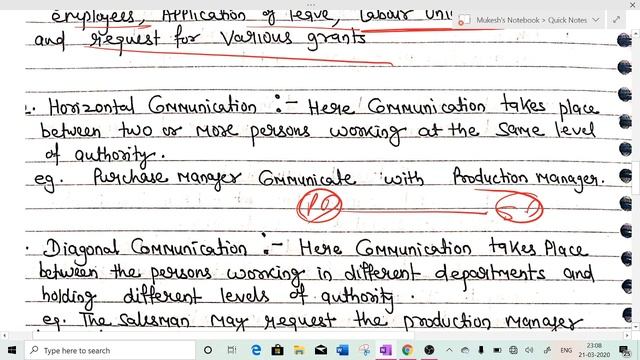 employees, Application of leave, Labour Uni
Mukesh's Notebook > Quick Notes
and request for Various grants
. Horizontal Communication :- Here Communication takes place
between two or more persons working at the same level
of authority.
eg. Purchase Manager Communicate with Production Manager.
. Diagonal Communication :- Here Communication takes Place
between the persons working in different departments and
holding different levels of authority.
eg. The Salesman may request the production manager
Type here to search
23:08
21-03-2020